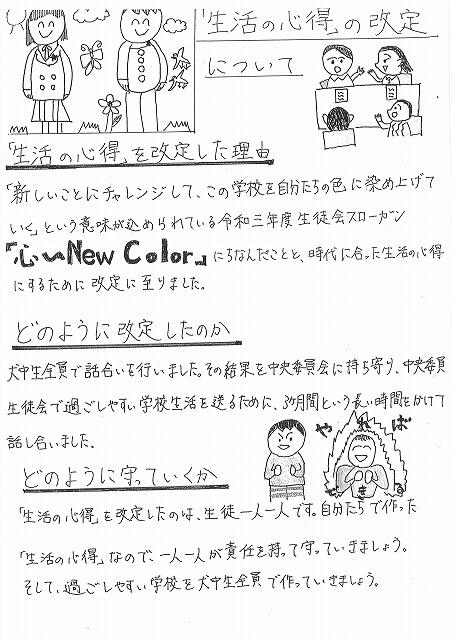 「生活の心得」の改定
について
「生活の心得」を改定した理由
「新しいことにチャレンジして、この学校を自分たちの色に染め上げて
いく」という意味が込められている令和三年度生徒会スローガン
『心い New Color』にちなんだことと、時代に合った生活の心得
にするために改定に至りました。
どのように改定したのか
犬中生全員で話合いを行いました。その結果を中央委員会に持ち寄り、中央委員
生徒会で過ごしやすい学校生活を送るために、3カ月間という長い時間をかけて
話し合いました。
やれば
できる
どのように守っていくか
「生活の心得」を改定したのは、生徒一人一人です。自分たちで作った
「生活の心得」なので、一人一人が責任を持って守っていきましょう。
そして、過ごしやすい学校を犬中生全員で作っていきましょう。